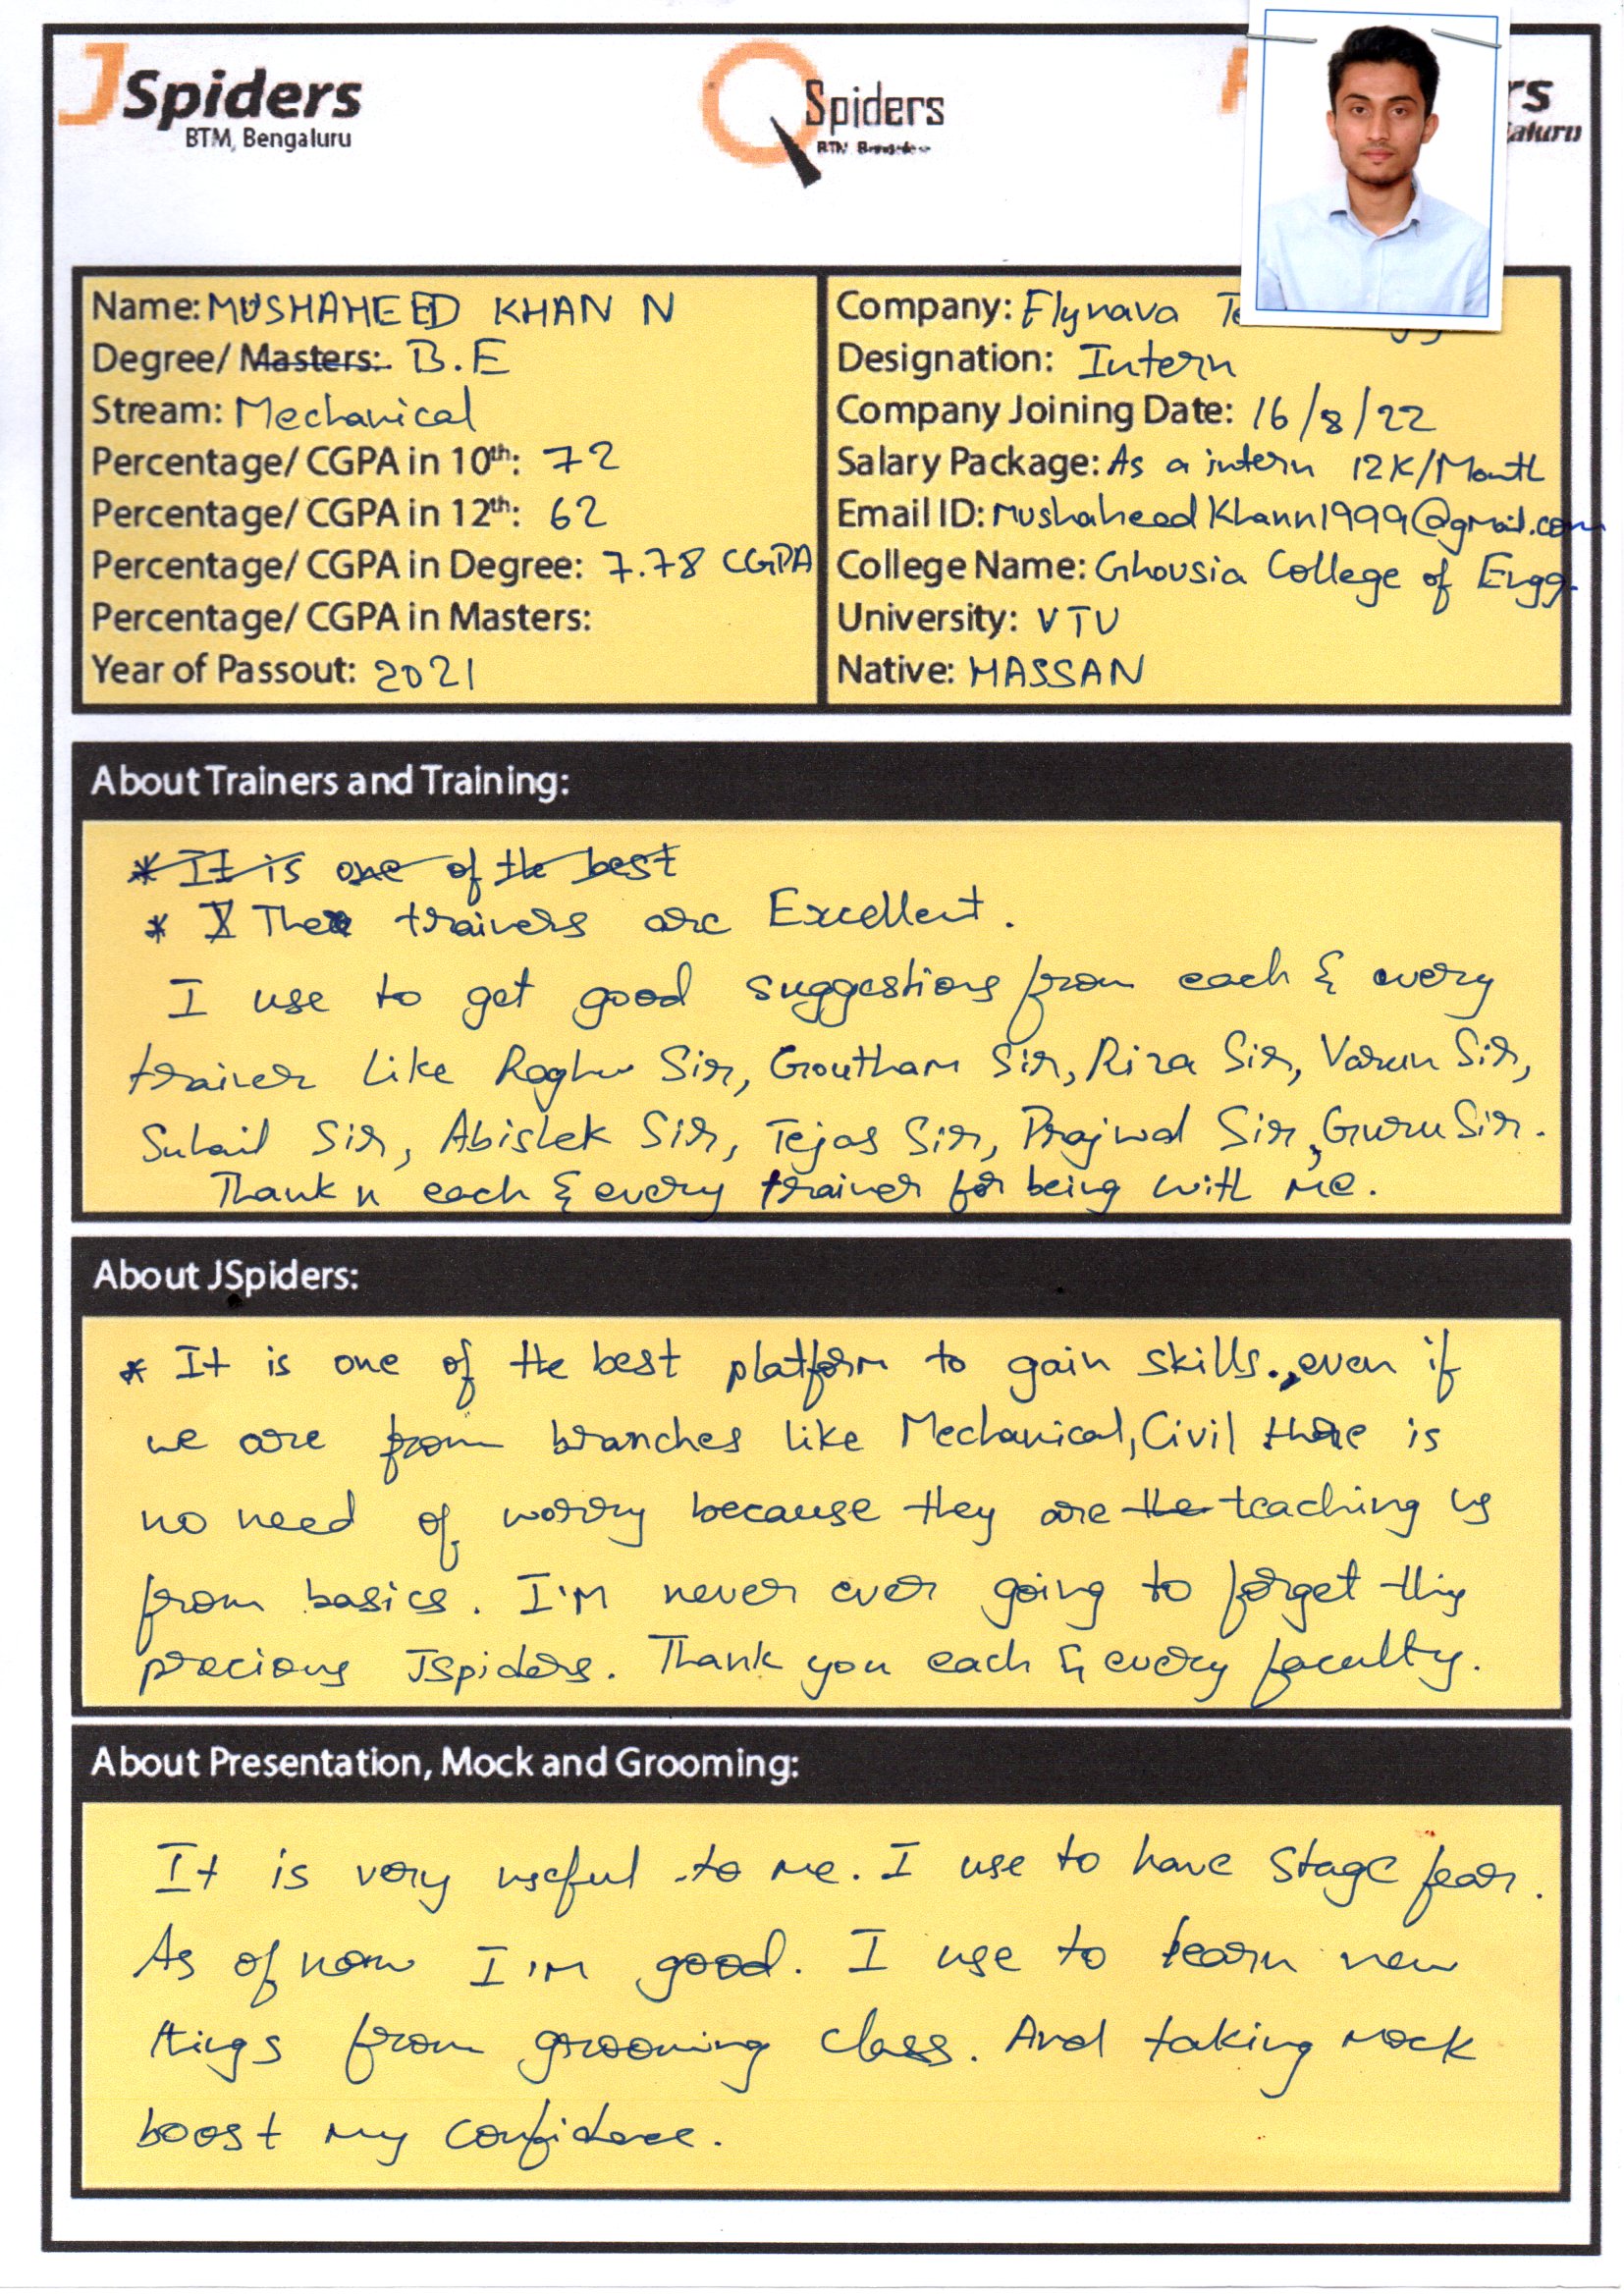 JSpiders
BTM, Bengaluru
QSpiders
BTM, Bengaluru
rs
aluru
Name: MUSHAHEED KHAN N
Degree/ Masters: B.E
Stream: Mechanical
Percentage/ CGPA in 10th: 72
Percentage/ CGPA in 12th: 62
Percentage/ CGPA in Degree: 7.78 CGPA
Percentage/ CGPA in Masters:
Year of Passout: 2021
Company: Flynava
Designation: Intern
Company Joining Date: 16/8/22
Salary Package: As a intern 12K/Month
Email ID: MushaheedKhann1999@gmail.com
College Name: Ghousia College of Engg.
University: VTU
Native: HASSAN
About Trainers and Training:
* It is one of the best
* The trainers are Excellent.
I use to get good suggestions from each & every
trainer like Raghu Sir, Goutham Sir, Riza Sir, Varun Sir,
Suhail Sir, Abishek Sir, Tejas Sir, Prajwal Sir, Guru Sir.
Thank u each & every trainer for being with me.
About JSpiders:
* It is one of the best platform to gain skills., even if
we are from branches like Mechanical, Civil there is
no need of worry because they are the teaching us
from basics. I'm never ever going to forget this
precious Jspiders. Thank you each & every faculty.
About Presentation, Mock and Grooming:
It is very useful to me. I use to have Stage fear.
As of now I'm good. I use to learn new
things from grooming class. And taking mock
boost my confidence.